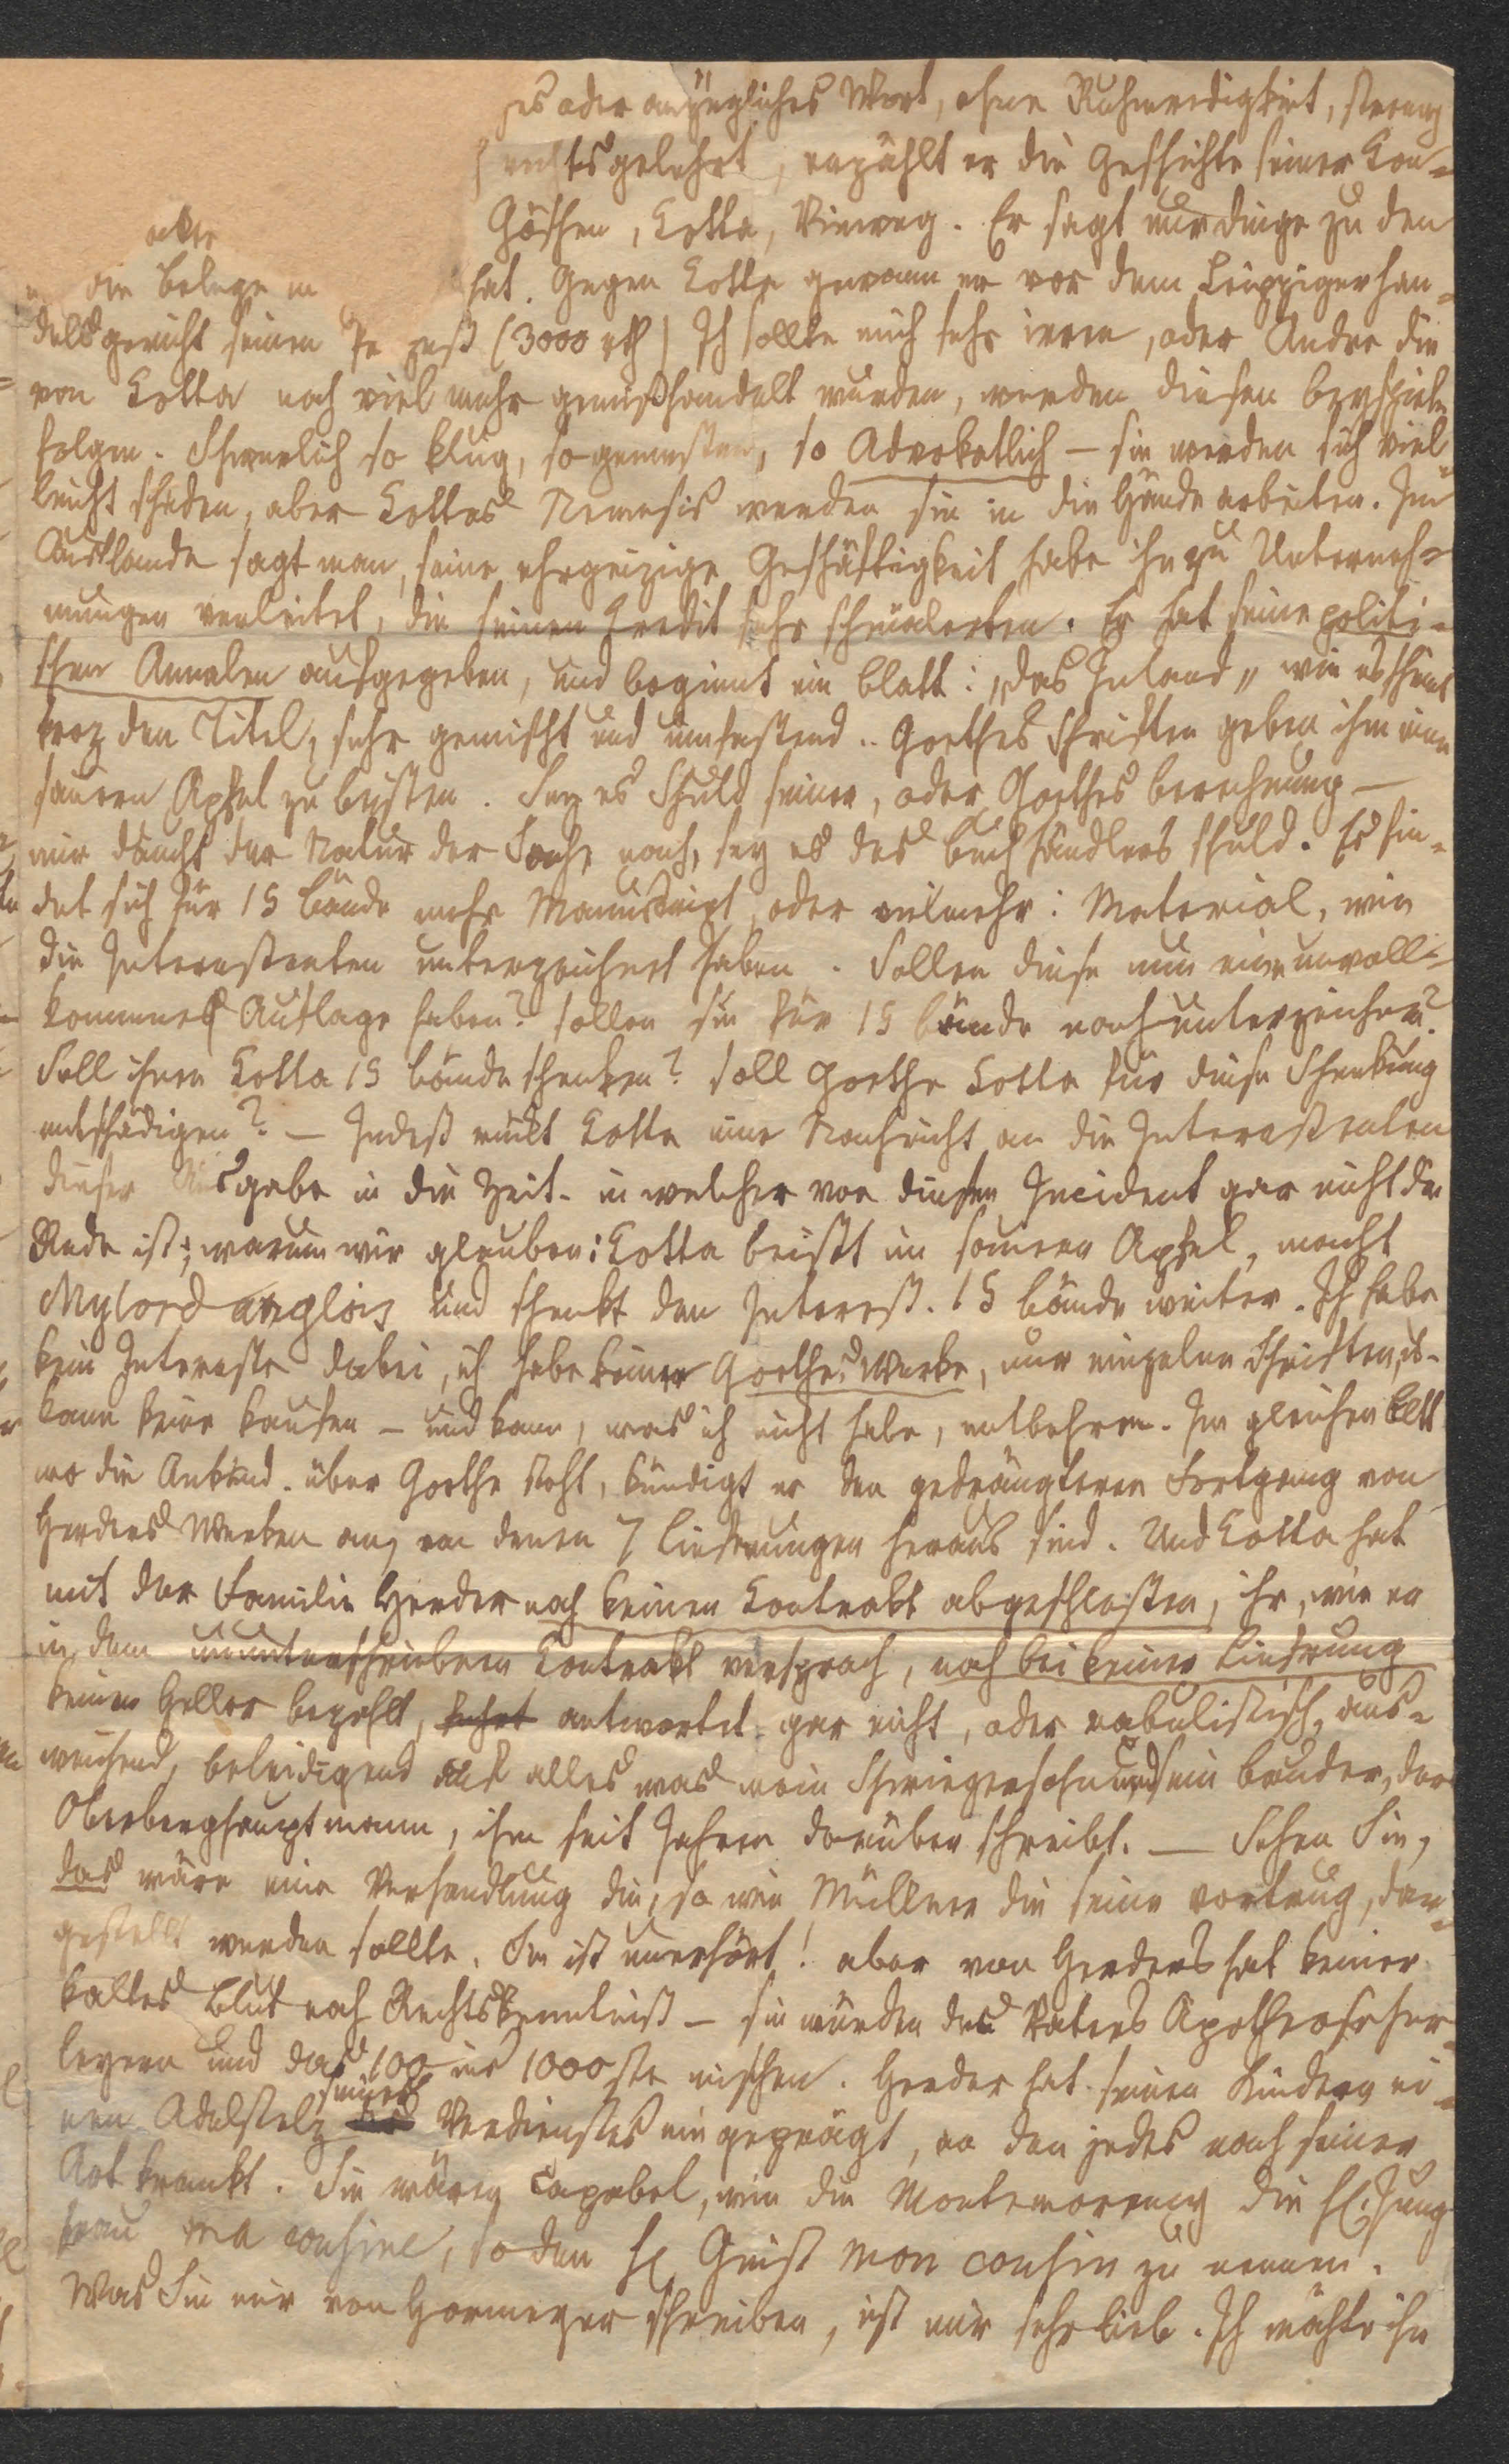 es oder anzügliches Wort, ohne Ruhmredigkeit, streng
rechtsgelehrt, erzählt er die Geschichte seiner Con-
Göschen, Cotta, Vieweg. Er sagt nur dinge zu den
die Belege in hat. Gegen Cotta gewann er vor dem Leipzigerhan-
delsgericht seinen Pr zeß (3000 rth) Ich sollte mich sehr irren, oder Andre die
von Cotta noch viel mehr gemißhandelt wurden, werden diesen beyspiele
folgen. Schwerlich so klug, so gemessen, so Advokatlich – sie werden sich viel-
leicht schaden, aber Cottas Nemesis werden sie in die Hände arbeiten. Im
Auslande sagt man, seine ehrgeizige Geschäftigkeit habe ihn zu Unterneh-
mungen verleitet, die seinen Credit sehr schmälerten. Er hat seine politi-
schen Annalen aufgegeben, und beginnt ein Blatt: „das Inland„ wie es scheint
troz den Titel, sehr gemischt und umfassend.. Goethes Schriften geben ihm einen
sauren Apfel zu beissen. Sey es Schuld seiner, oder Goethes berechnung –
mir däucht der Natur der Sache nach, sey es des Buchhändlers schuld. Es fin-
det sich für 15 bände mehr Manuscript, oder vielmehr: Material, wie
die Interessenten unterzeichnet haben. Sollen diese nun eine unvoll-
kommne Auflage haben? sollen sie für 15 bände nachunterzeichnen?
Soll ihnen Cotta 15 bände schenken? soll Goethe Cotta für diese Schenkung
entschädigen? – Indeß rückt Cotta eine Nachricht an die Interessenten
dieser Ausgabe in die Zeit. in welcher von diesem Incident gar nicht die
Rede ist; warum wir glauben: Cotta beißt im sauren Apfel, macht
Mylord anglois und schenkt den Interess. 15 bände weiter. Ich habe
kein Interesse dabei, ich habe keine Goethes Werke, nur einzelne Schriften,
kann keine kaufen – und kann, was ich nicht habe, entbehren. Im gleichen Blatt
wo die Ankünd. über Goethe steht, kündigt er den gedrängteren Fortgang von
Herders Werken an, von denen 7 Lieferungen heraus sind. Und Cotta hat
mit der Familie Herder noch keinen Contrakt abgeschlossen, ihr, wie er
in dem ununterschriebnen Contrakt versprach, noch bei keiner Lieferung
keinen Heller bezahlt, antwortet gar nicht, oder rabulistisch, aus-
weichend, beleidigend auf alles was mein Schwiegersohn und sein bruder, der
Oberberghauptmann, ihm seit Jahren darüber schreibt. – Sehen Sie,
das wäre eine Verhandlung die, so wie Müllner die seine vortrug, dar-
gestellt werden sollte. Sie ist unerhört! aber von Herders hat keiner
kaltes Blut noch Rechtskenntniß – sie würden des Vaters Apotheose her-
leyern und das 100 ins 1000ste mischen. Herder hat seinen Kindern ei-
nen Adelstolz seines Verdienstes eingeprägt, an den jedes nach seiner
Art krankt. Sie wären capabel, wie die Montmorency die hl. Jung
frau ma cousine, so den hl Geist mon cousin zu nennen.
Was Sie mir von Hormeyer schreiben, ist mir sehr lieb. Ich möchte ihn